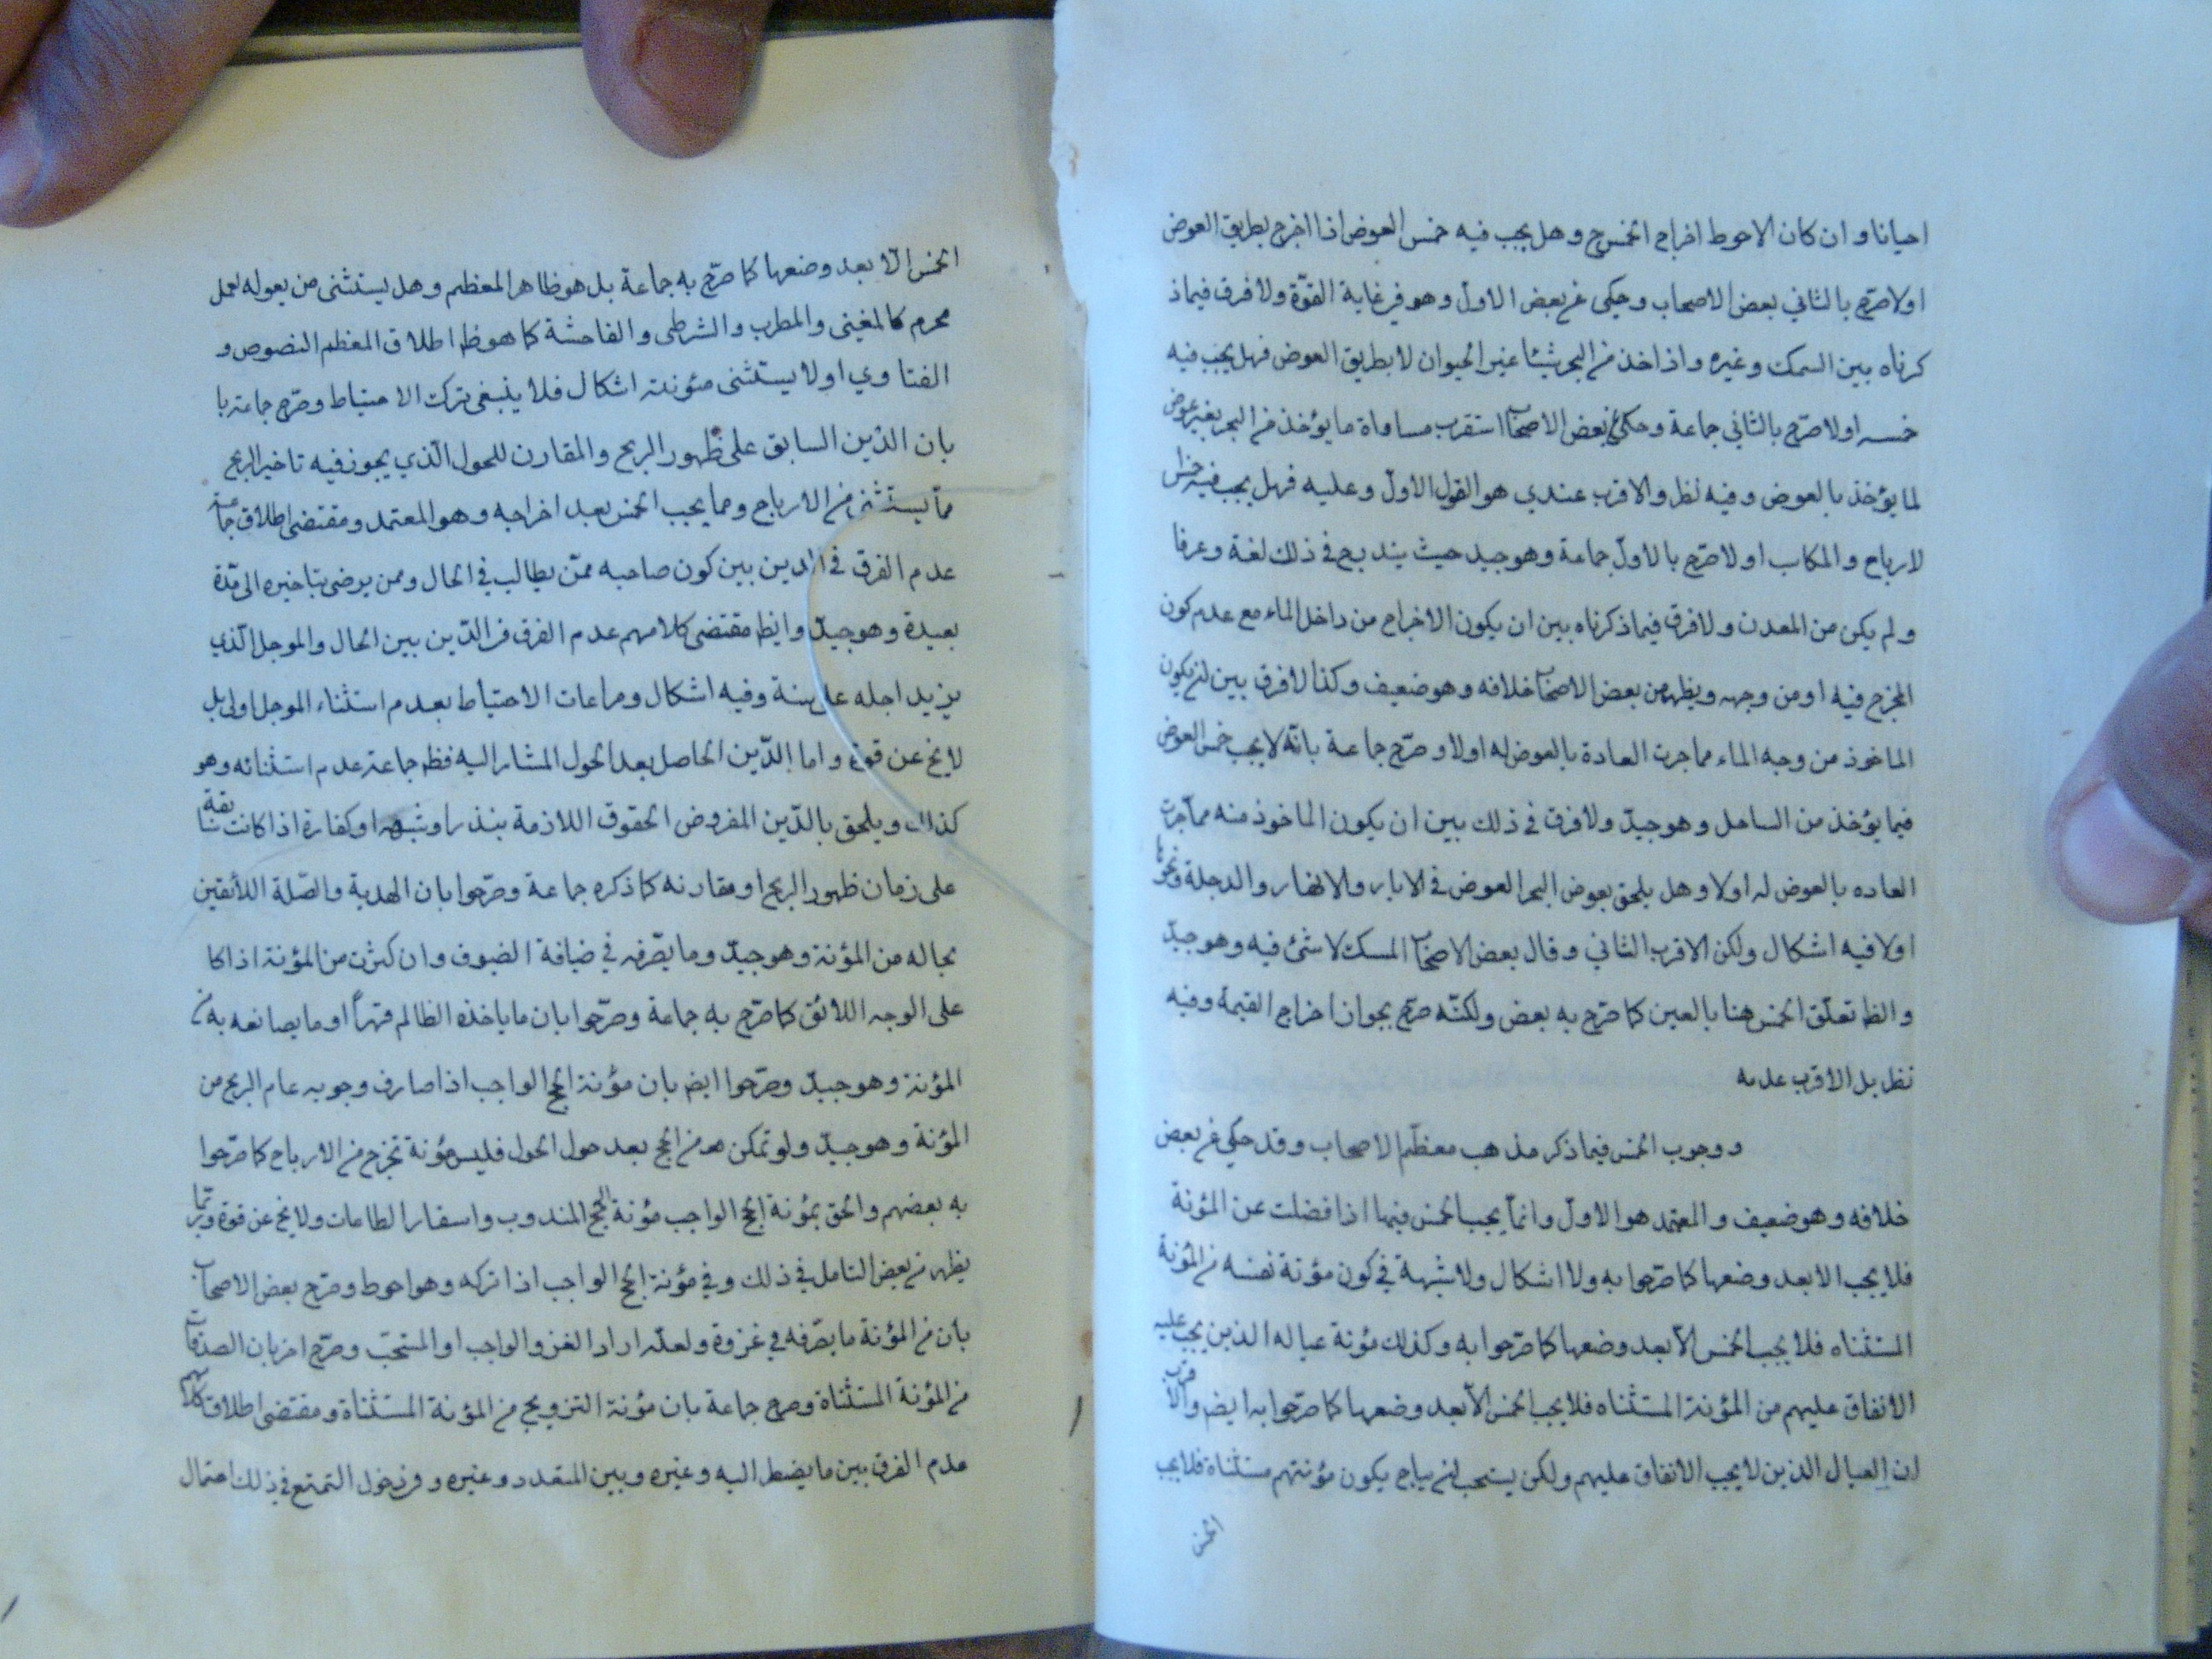 احيانا و ان كان الاحوط اخراج الخمس ح و هل يجب فيه خمس العوض اذا اخرج بطريق العوض
اولا صرّح بالثاني بعض الاصحاب و حكى عن بعض الاول و هو في غاية القوّة ولا فرق فيما ذ
كرناه بين السمك و غيره و اذا اخذ من البحر شيئا غير الحيوان لا بطريق العوض فهل يجب فيه
خمسه اولا صرّح بالثاني جماعة و حكى عن بعض الاصحاب استقرب مساواة ما يؤخذ من البحر بغير عوض
لما يؤخذ بالعوض و فيه نظر و الاقرب عندي هو القول الاول و عليه فهل يجب فيه خمس ا
لارباح و المكاسب اولا صرّح بالاول جماعة و هو جيد حيث يندرج في ذلك لغة و عرفا
و لم يكن من المعدن و لا فرق فيما ذكرناه بين ان يكون الاخراج من داخل الماء مع عدم كون
المخرج فيه او من وجهه و يظهر من بعض الاصحاب خلافه و هو ضعيف و كذا لا فرق بين ان يكون
الماخوذ من وجه الماء مما جرت العادة بالعوض له اولا و صرّح جماعة بانّه لا يجب خمس العوض
فيما يؤخذ من الساحل و هو جيدّ ولا فرق في ذلك بين ان يكون الماخوذ منه ممّا جرت
العاده بالعوض له اولا و هل يلحق بعوض البحر العوض في الابار و الانهار و الدجلة و نحوها
اولا فيه اشكال ولكن الاقرب الثاني و قال بعض الاصحاب المسك لا شئ فيه و هو جيدّ
و الظ تعلّق الخمس هنا بالعين كما صرّح به بعض ولكنّه صرّح بجواز اخراج القيمة و فيه
نظر بل الاقرب عدمه
و وجوب الخمس فيما ذكر مذهب معظم الاصحاب و قد حكي عن بعض
خلافه و هو ضعيف و المعتمد هو الاول و انمّا يجب الخمس فيها اذا فضلت عن المؤنة
فلا يجب الا بعد وضعها كما صرّحوا به ولا اشكال ولا شبهة في كون مؤنة نفسه من المؤنة
المستثناه فلا يجب الخمس الاّ بعد وضعها كما صرّحوا به و كذلك مؤنة عياله الذين يجب عليه
الانفاق عليهم من المؤنة المستثناه فلا يجب الخمس الاّ بعد وضعها كما صرّحوا به ايض و الاقرب
ان العيال الذين لا يجب الانفاق عليهم ولكن يستحب او يباح يكون مؤنتهم مستثناة فلا يجب
الخمس
الخمس الاّ بعد وضعها كما صرّح به جماعة بل هو ظاهر المعظم و هل يستثنى من يعوله لعمل
محرم كالمغني و المطرب و الشرطى و الفاحشة كما هو ظ اطلاق المعظم النصوص و
الفتاوي او لا يستثنى مئونته اشكال فلا ينبغى ترك الاحتياط و صرّح جماعة با
بان الدّين السابق على ظهور الربح و المقارن للحول الّذي يجوز فيه تاخير الربح
ممّا يستثنى من الارباح و مما يجب الخمس بعد اخراجه و هو المعتمد و مقتضى اطلاق جماعة
عدم الفرق في الدين بين كون صاحبه ممّن يطالب في الحال و ممن يرضى بتاخيره الى مّدة
بعيدة و هو جيدّ و ايظ مقتضى كلامهم عدم الفرق في الدّين بين الحال و الموجل الّذي
يزيد اجله على سنة و فيه اشكال و مراعات الاحتياط بعدم استثناء الموجل اولى بل
لا يخ عن قوة و اما الدّين الحاصل بعد الحول المشار اليه فظ جماعة عدم استثنائه و هو
كذلك و يلحق بالدّين المفروض الحقوق اللازمة بنذر او شبهه او كفارة اذا كانت سابقة
على زمان ظهور الربح او مقارنه كما ذكره جماعة و صرّحوا بان الهدية و الصّلة اللائقين
بحاله من المؤنة و هو جيدّ و ما يصّرفه في ضيافة الضيوف و ان كثرت من المؤنة اذا كا
على الوجه اللائق كما صرّح به جماعة و صرّحوا بان ما ياخذه الظالم قهراً او ما يصانعه به من
المؤنة و هو جيدّ و صرّحوا ايض بان مؤنة الحج الواجب اذا صارف وجوبه عام الربح من
المؤنة و هو جيدّ ولو تمكن منه من الحج بعد حول الحول فليس مؤنة تخرج من الارباح كما صرّحوا
به بعضهم و الحق بمؤنة الحج الواجب مؤنة الحج المندوب و اسفار الطاعات ولا يخ عن قوة و ربّما
يظهر من بعض التامل في ذلك و في مؤنة الحج الواجب اذا تركه و هو احوط و صرّح بعض الاصحاب
بان من المؤنة ما يصّرفه في غزوة و لعلّه اراد الغزو الواجب او المستحبّ و صرّح اخر بان الصدقات
من المؤنة المستثناة و صرح جماعة بان مؤنة التزويج من المؤنة المستثناة و مقتضى اطلاق كلامهم
عدم الفرق بين ما يضطر اليه و غيره و بين المتعدد و غيره و في دخول التمتع في ذلك احتمال